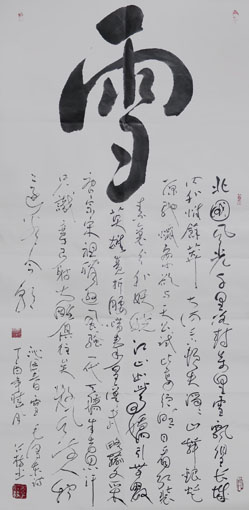 雪
北國风光千里冰封万里雪飘望长城
内外惟餘莽莽大河上下顿失滔滔山舞银蛇
原驰蜡象欲与天公试比高须晴日看红装
素裹分外妖娆江山如此多娇引无数
英雄竞折腰惜秦皇汉武略输文采
唐宗宋祖稍逊风骚一代天骄成吉思汗
只识弯弓射大雕俱往矣数风流人物
还看今朝
沁园春雪毛泽东词
丁酉年